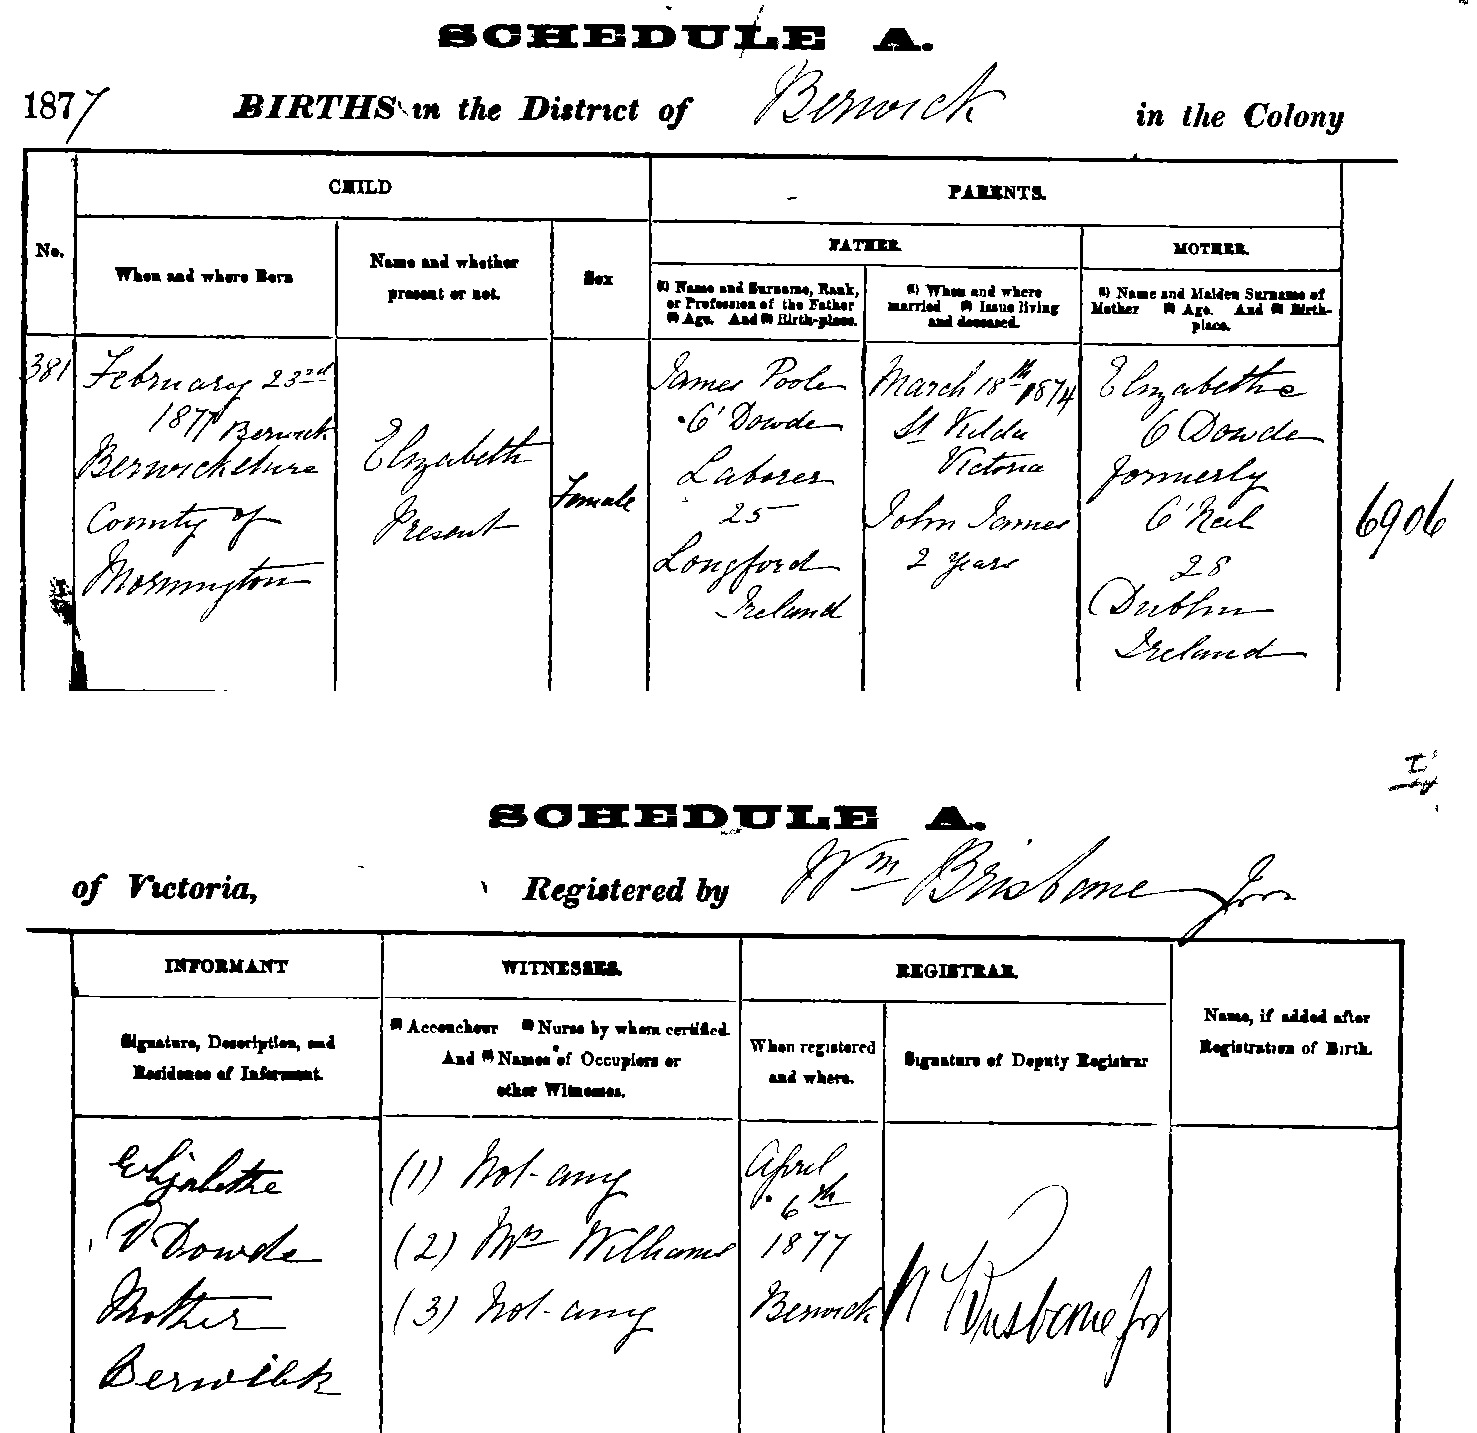 SCHEDULE A.
1877 BIRTHS in the District of Berwick in the Colony
No.
CHILD
When and where Born
Name and whether
present or not.
Sex
PARENTS.
FATHER.
(1) Name and Surname, Rank,
or Profession of the Father
(2) Age. And (3) Birth-place.
(1) When and where
married (2) Issue living
and deceased.
MOTHER.
(1) Name and Maiden Surname of
Mother (2) Age. And (3) Birth-
place.
381
February 23rd
1877 Berwick
Berwickshire
County of
Mornington
Elizabeth
Present
Female
James Poole
O'Dowde
Laborer
25
Longford
Ireland
March 18th 1874
St Kilda
Victoria
John James
2 years
Elizabethe
O Dowde
formerly
O'Neil
28
Dublin
Ireland
6906
SCHEDULE A.
of Victoria, Registered by Wm Brisbane Jnr
INFORMANT
Signature, Description, and
Residence of Informant.
WITNESSES.
(1) Accoucheur (2) Nurse by whom certified.
And (3) Names of Occupiers or
other Witnesses.
REGISTRAR.
When registered
and where.
Signature of Deputy Registrar
Name, if added after
Registration of Birth.
Elizabethe
O Dowde
Mother
Berwibk
(1) Not any
(2) Mrs Williams
(3) Not any
April
6th
1877
Berwick
W Brisbane Jnr